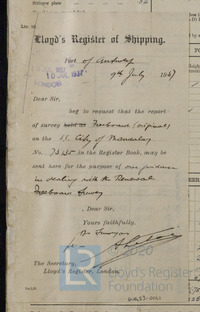 Lloyd's Register of Shipping.
Port of Antwerp
9th July 1937
Dear Sir,
beg to request that the report
of survey Freeboard (original)
on the SS. City of
No. in the Register Book, may be
sent here for the purpose of our guidance
in dealing with the Renewal
Freeboard Survey
Dear Sir,
Yours faithfully,
The Secretary,
Lloyd's Register, London.
© 2020
Lloyd's Register
Foundation